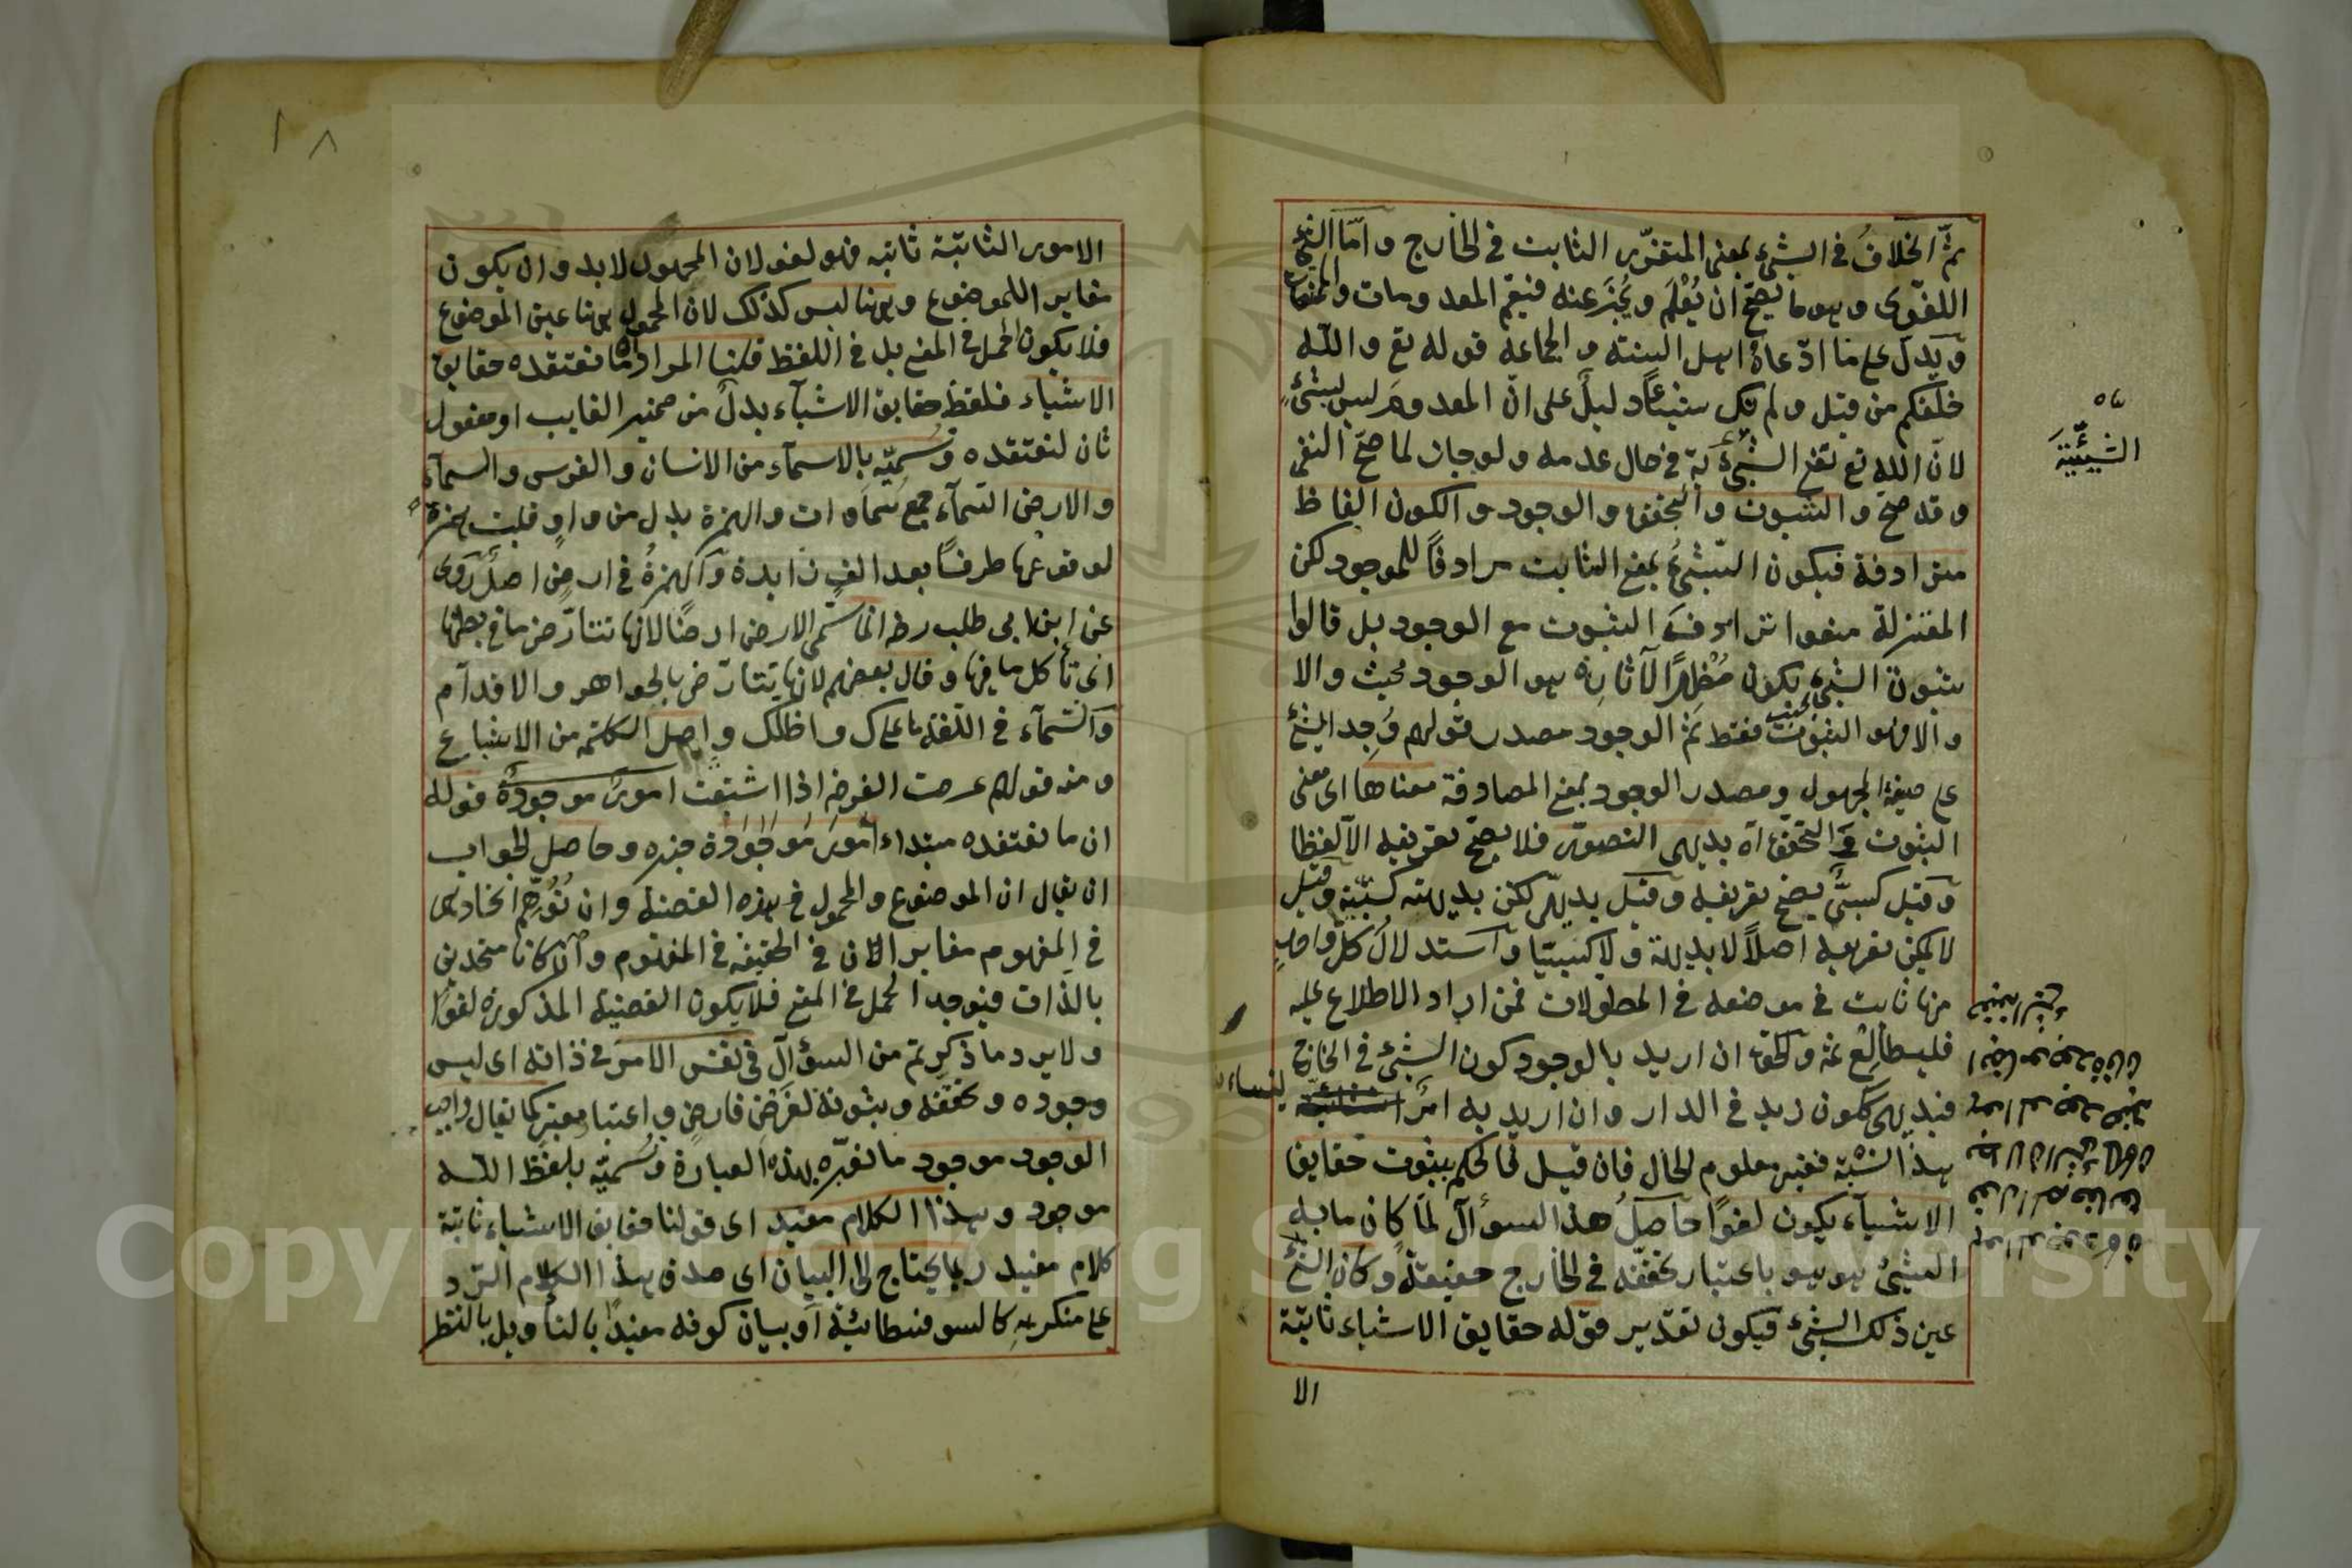 ثم الخلاف في الشيء بمعنى المتقرر الثابت في الخارج واما الشيء
اللغوى وهو ما يصح ان يعلم ويخبر عنه فيعم المعدومات والممتنعات
ويدل على ما ادعاه اهل السنة والجماعة قوله تع والله
خلقكم من قبل ولم يك شيئا دليل على ان المعدوم ليس بشيء
لان الله تع نفى الشيئية في حال عدمه ولو جاز لما صح النفى
وقد صح والثبوت والتحقق والوجود والكون الفاظ
مترادفة فيكون الشيء بمعنى الثابت مرادفا للموجود لكن
المعتزلة منعوا ترادف الثبوت مع الوجود بل قالوا
ثبوت الشيء يكون مظهرا لآثاره هو الوجود والا
فقط ثم الوجود مصدر قولهم وجد الشيء
على صيغة المجهول ومصدر الوجود بمعنى المصادفة معناها اى معنى
الثبوت والتحقق آه بديهى التصور فلا يصح تعريفه الا لفظا
وقيل كسبى يصح تعريفه وقيل بديهى لكن بديهته كسبية وقيل
لا يمكن تعريفه اصلا لا بديهة ولا كسبيا واستدلال كل واحد
منها ثابت في موضعه في المطولات فمن اراد الاطلاع عليه
فليطالع ثمه والحق ان اريد بالوجود كون الشيء في الخارج
فبديهى ككون زيد في الدار وان اريد به امرا
هذا النسبة فغير معلوم الحال فان قيل فالحكم بثبوت حقايق
الاشياء يكون لغوا حاصل هذا السؤال لما كان ما به
الشيء هو هو باعتبار تحققه في الخارج حقيقة وكان الشيء
عين ذلك الشيء فيكون تقدير قوله حقايق الاشياء ثابتة
الا
الشيئية
١٨
الامور الثابتة ثابته فهو لغو لان المحمول لا بد وان يكون
مغايرا للموضوع وههنا ليس كذلك لان المحمول ههنا عين الموضوع
فلا يكون الحمل في المعنى بل في اللفظ قلنا المراد ان ما نعتقده حقايق
الاشياء فلفظ حقايق الاشياء بدل من ضمير الغايب او مفعول
ثان لنعتقده ونسميه بالاسماء من الانسان والفرس والسماء
والارض السماء جمع سماوات والهمزة بدل من واو قلبت همزة
لوقوعها طرفا بعد الف زايدة والهمزة في ارض اصل روى
عن ابن ابى طلب رضه انما سمى الارض ارضا لانها تتأرض ما في بطنها
اى تأكل ما فيها وقال بعضهم لانها تتأرض بالحواهر والاقدام
والسماء في اللغة ما علاك واظلك واصل الكلمة من
ومنه قولهم ارضت القرحة اذا اتسعت امور موجودة قوله
ان ما نعتقده مبتداء امور موجودة خبره وحاصل الجواب
ان يقال ان الموضوع والمحمول في هذه القضية وان توهم اتحادهما
في المفهوم مغاير الان في الحقيقة في المفهوم وان كانا متحدين
بالذات فيوجد الحمل في المعنى فلا يكون القضية المذكورة لغوا
ولا يرد ما ذكرتم من السؤال في نفس الامر في ذاته اى ليس
وجوده وتحققه وثبوته لفرض فارض واعتبار معتبر كما يقال واجب
الوجود موجود ما نعبره بهذه العبارة ونسميه بلفظ الله
موجود وهذا الكلام مفيد اى قولنا حقايق الاشياء ثابتة
كلام مفيد ربما يحتاج الى البيان اى صدق هذا الكلام الرد
على منكريه كالسوفسطائية او بيان كونه مفيدا بالتأويل بالنظر